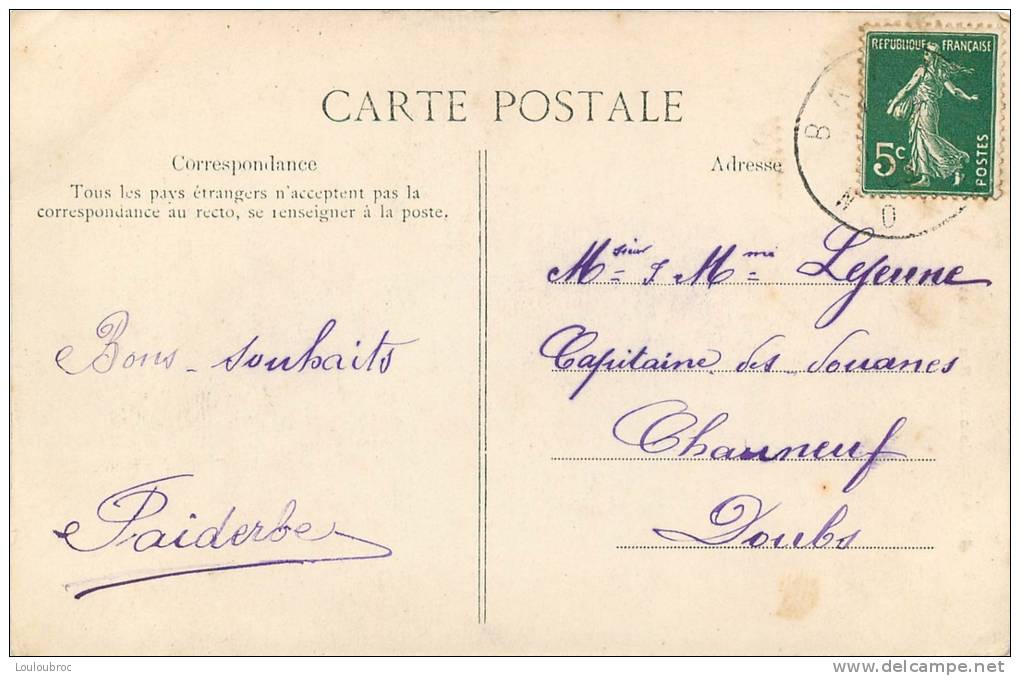 CARTE POSTALE
RÉPUBLIQUE FRANÇAISE
5c
POSTES
Correspondance
Tous les pays étrangers n'acceptent pas la
correspondance au recto, se renseigner à la poste.
Adresse
Bons - souhaits
Paiderbe
Msieur & Mme Lejeune
Capitaine des douanes
Chauneuf
Doubs
Louloubroc
delcampe.net